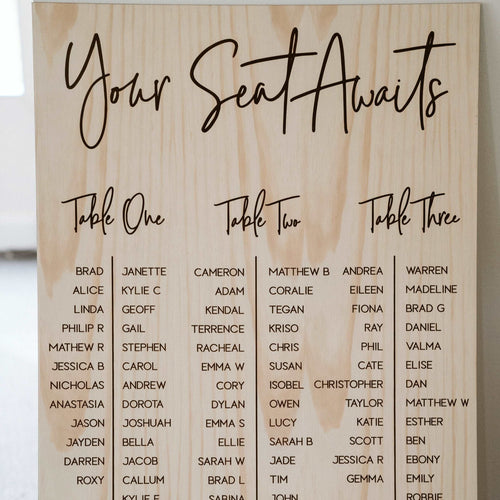 Your Seat Awaits
Table One
BRAD JANETTE
ALICE KYLIE C
LINDA GEOFF
PHILIP R GAIL
MATHEW R STEPHEN
JESSICA B CAROL
NICHOLAS ANDREW
ANASTASIA DOROTA
JASON JOSHUAH
JAYDEN BELLA
DARREN JACOB
ROXY CALLUM
KYLIE
Table Two
CAMERON MATTHEW B
ADAM CORALIE
KENDAL TEGAN
TERRENCE KRISO
RACHEAL CHRIS
EMMA W SUSAN
CORY ISOBEL
DYLAN OWEN
EMMA S LUCY
ELLIE SARAH B
SARAH W JADE
BRAD L TIM
SABINA JOHN
Table Three
ANDREA WARREN
EILEEN MADELINE
FIONA BRAD G
RAY DANIEL
PHIL VALMA
CATE ELISE
CHRISTOPHER DAN
TAYLOR MATTHEW W
KATIE ESTHER
SCOTT BEN
JESSICA R EBONY
GEMMA EMILY
ROBBIE